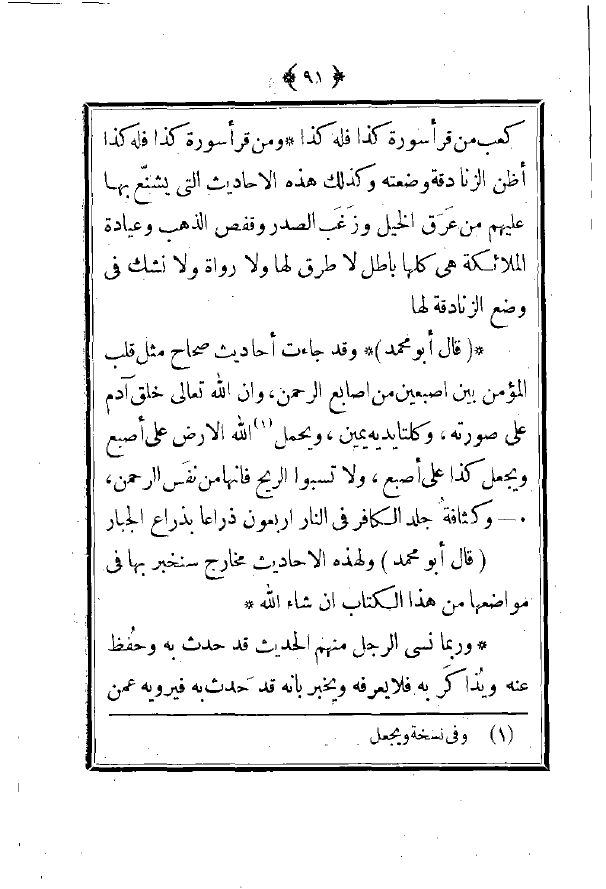 ﴿ ٩١ ﴾
كعب من قرأ سورة كذا فله كذا * ومن قرأ سورة كذا فله كذا
أظن الزنادقة وضعته وكذلك هذه الاحاديث التى يشنّع بها
عليهم من عَرَق الخيل وزَغَب الصدر وقفص الذهب وعيادة
الملائكة هى كلها باطل لا طرق لها ولا رواة ولا نشك فى
وضع الزنادقة لها
*( قال أبو محمد )* وقد جاءت أحاديث صحاح مثل قلب
المؤمن بين اصبعين من اصابع الرحمن، وان الله تعالى خلق آدم
على صورته ، وكلتا يديه يمين ، ويحمل (١) الله الارض على أصبع
ويجعل كذا على أصبع ، ولا تسبوا الريح فانها من نفَس الرحمن،
٠— وكثافةُ جلد الكافر فى النار اربعون ذراعا بذراع الجبار
( قال أبو محمد ) ولهذه الاحاديث مخارج سنخبر بها فى
مواضعها من هذا الكتاب ان شاء الله *
* وربما نسى الرجل منهم الحديث قد حدث به وحُفظ
عنه ويُذاكَر به فلا يعرفه ويخبر بانه قد حَدث به فيرويه عمن
(١) وفى نسخة ويجعل